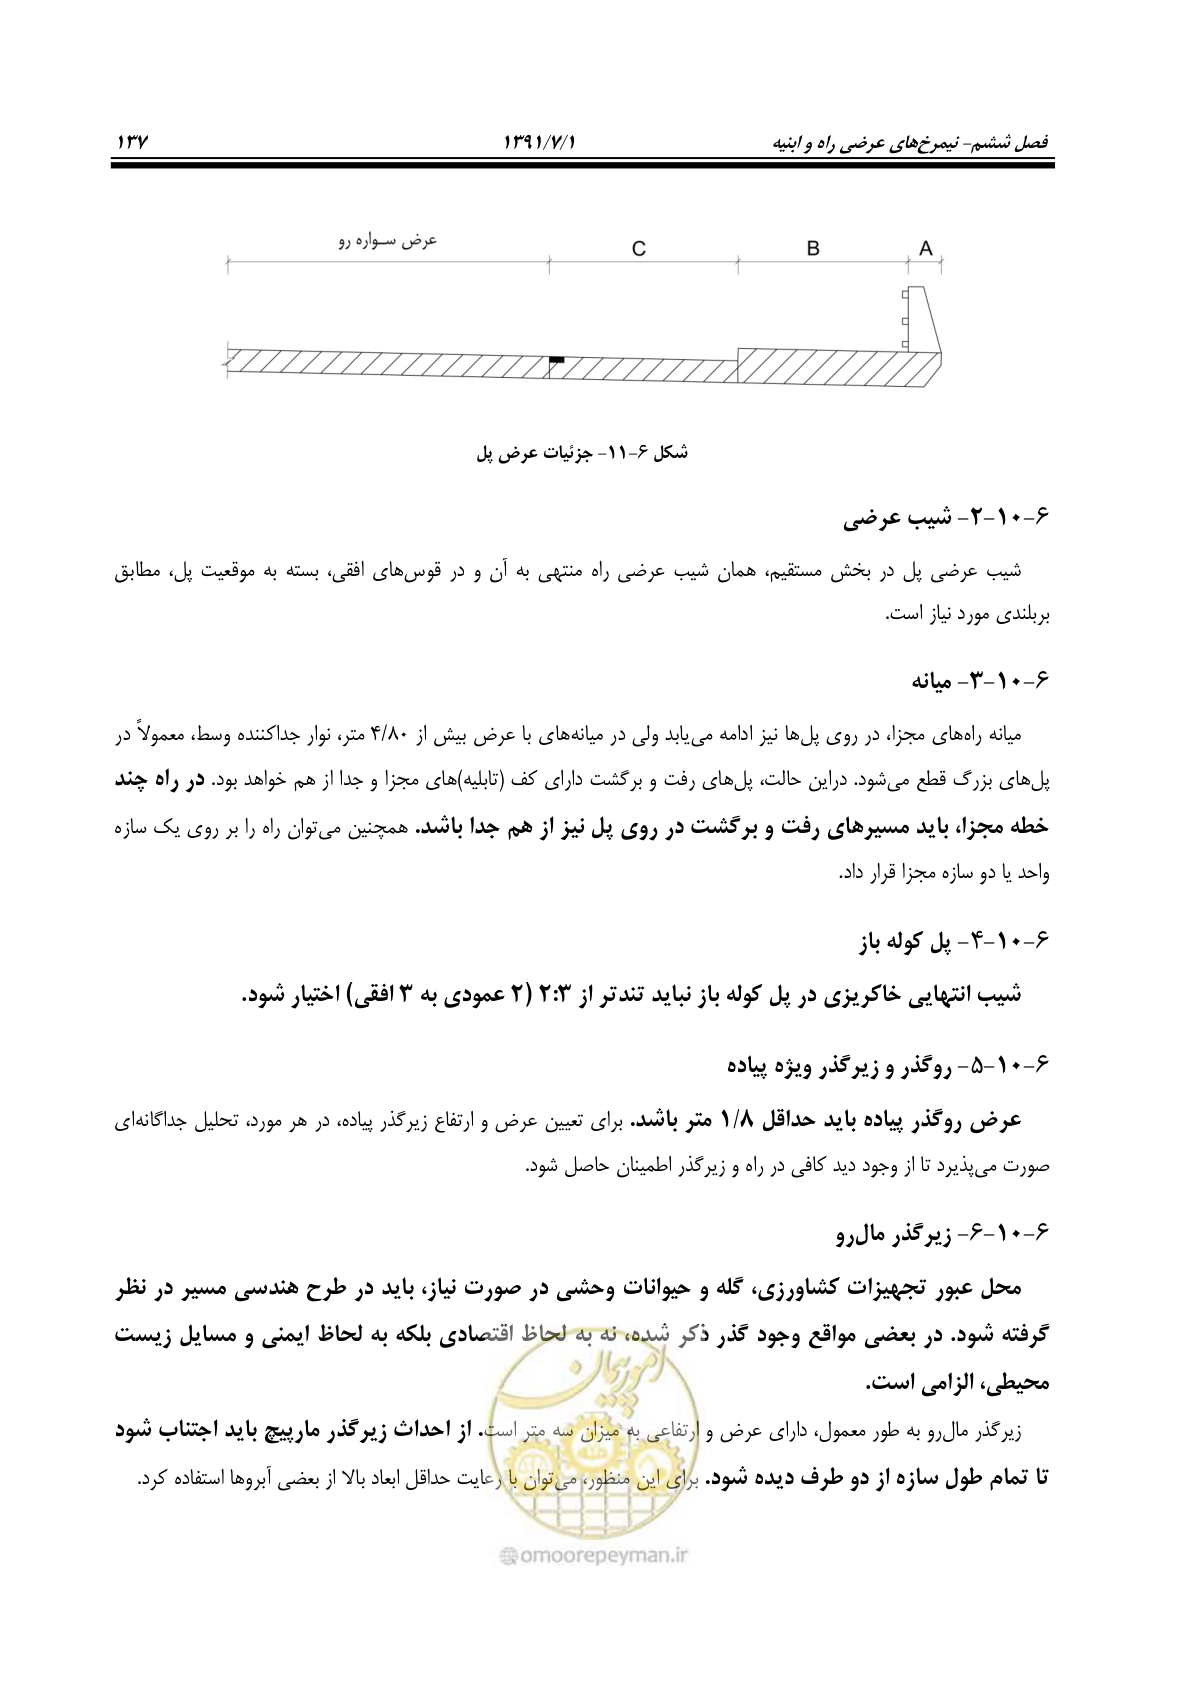 فصل ششم- نیمرخ‌های عرضی راه و ابنیه ۱۳۹۱/۷/۱ ۱۳۷
عرض سواره رو C B A
شکل ۶-۱۱- جزئیات عرض پل
۶-۱۰-۲- شیب عرضی
شیب عرضی پل در بخش مستقیم، همان شیب عرضی راه منتهی به آن و در قوس‌های افقی، بسته به موقعیت پل، مطابق
بربلندی مورد نیاز است.
۶-۱۰-۳- میانه
میانه راه‌های مجزا، در روی پل‌ها نیز ادامه می‌یابد ولی در میانه‌های با عرض بیش از ۴/۸۰ متر، نوار جداکننده وسط، معمولاً در
پل‌های بزرگ قطع می‌شود. دراین حالت، پل‌های رفت و برگشت دارای کف (تابلیه)های مجزا و جدا از هم خواهد بود. در راه چند
خطه مجزا، باید مسیرهای رفت و برگشت در روی پل نیز از هم جدا باشد. همچنین می‌توان راه را بر روی یک سازه
واحد یا دو سازه مجزا قرار داد.
۶-۱۰-۴- پل کوله باز
شیب انتهایی خاکریزی در پل کوله باز نباید تندتر از ۲:۳ (۲ عمودی به ۳ افقی) اختیار شود.
۶-۱۰-۵- روگذر و زیرگذر ویژه پیاده
عرض روگذر پیاده باید حداقل ۱/۸ متر باشد. برای تعیین عرض و ارتفاع زیرگذر پیاده، در هر مورد، تحلیل جداگانه‌ای
صورت می‌پذیرد تا از وجود دید کافی در راه و زیرگذر اطمینان حاصل شود.
۶-۱۰-۶- زیرگذر مال‌رو
محل عبور تجهیزات کشاورزی، گله و حیوانات وحشی در صورت نیاز، باید در طرح هندسی مسیر در نظر
گرفته شود. در بعضی مواقع وجود گذر ذکر شده، نه به لحاظ اقتصادی بلکه به لحاظ ایمنی و مسایل زیست
محیطی، الزامی است.
زیرگذر مال‌رو به طور معمول، دارای عرض و ارتفاعی به میزان سه متر است. از احداث زیرگذر مارپیچ باید اجتناب شود
تا تمام طول سازه از دو طرف دیده شود. برای این منظور، می‌توان با رعایت حداقل ابعاد بالا از بعضی آبروها استفاده کرد.
امور پیمان
@omoorepeyman.ir